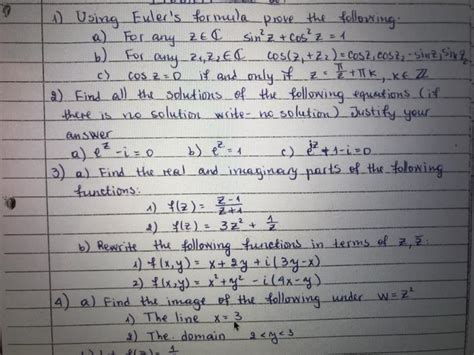 1) Using Euler's formula prove the following.
a) For any z∈ℂ sin²z + cos²z = 1
b) For any z₁, z₂ ∈ ℂ cos(z₁+z₂) = cosz₁cosz₂ - sinz₁sinz₂
c) cos z = 0 if and only if z = π/2 + πk, k∈ℤ
2) Find all the solutions of the following equations (if
there is no solution write - no solution). Justify your
answer
a) e^z - i = 0 b) e^z = 1 c) e^iz + 1 - i = 0
3) a) Find the real and imaginary parts of the following
functions:
1) f(z) = (z-1)/(z+1)
2) f(z) = 3z² + 1/z
b) Rewrite the following functions in terms of z, z̄:
1) f(x,y) = x + 2y + i(3y-x)
2) f(x,y) = x² + y² - i(4x-y)
4) a) Find the image of the following under w = z²
1) The line x = 3
2) The domain 2<y<3